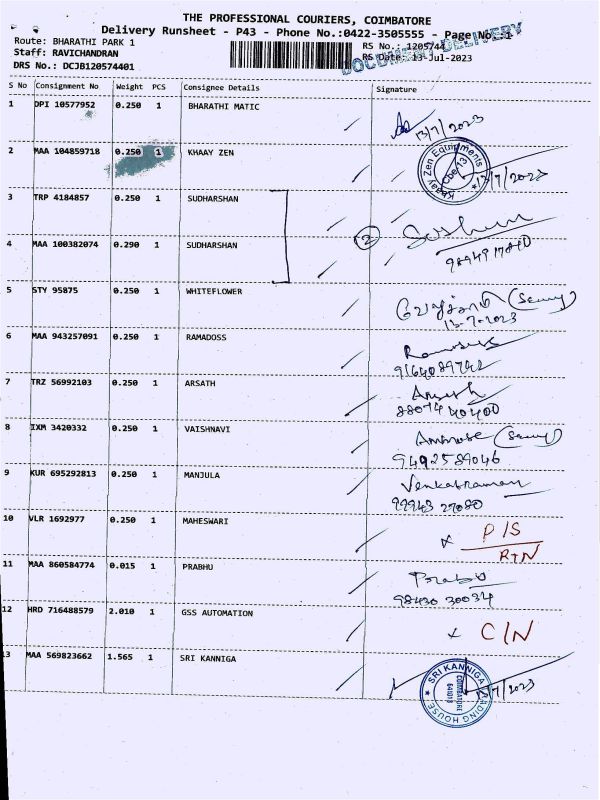 THE PROFESSIONAL COURIERS, COIMBATORE
Delivery Runsheet - P43 - Phone No.:0422-3505555 - Page No.:1
Route: BHARATHI PARK 1 RS No.: 1205744
Staff: RAVICHANDRAN RS Date: 13-Jul-2023
DRS No.: DCJB120574401
DOCUMENT DELIVERY
S No Consignment No Weight PCS Consignee Details Signature
1 DPI 10577952 0.250 1 BHARATHI MATIC 13/7/2023
2 MAA 104859718 0.250 1 KHAAY ZEN Khaay Zen Equipments Cbe-13 13/7/2023
3 TRP 4184857 0.250 1 SUDHARSHAN
4 MAA 100382074 0.290 1 SUDHARSHAN 2
5 STY 95875 0.250 1 WHITEFLOWER
6 MAA 943257091 0.250 1 RAMADOSS
7 TRZ 56992103 0.250 1 ARSATH
88074 40400
8 IXM 3420332 0.250 1 VAISHNAVI
9492589046
9 KUR 695292813 0.250 1 MANJULA Venkatraman
99943 27080
10 VLR 1692977 0.250 1 MAHESWARI x P/S
RTN
11 MAA 860584774 0.015 1 PRABHU Prabu
98430 30034
12 HRD 716488579 2.010 1 GSS AUTOMATION x C/N
13 MAA 569823662 1.565 1 SRI KANNIGA SRI KANNIGA TRADING HOUSE COIMBATORE 13/7/2023